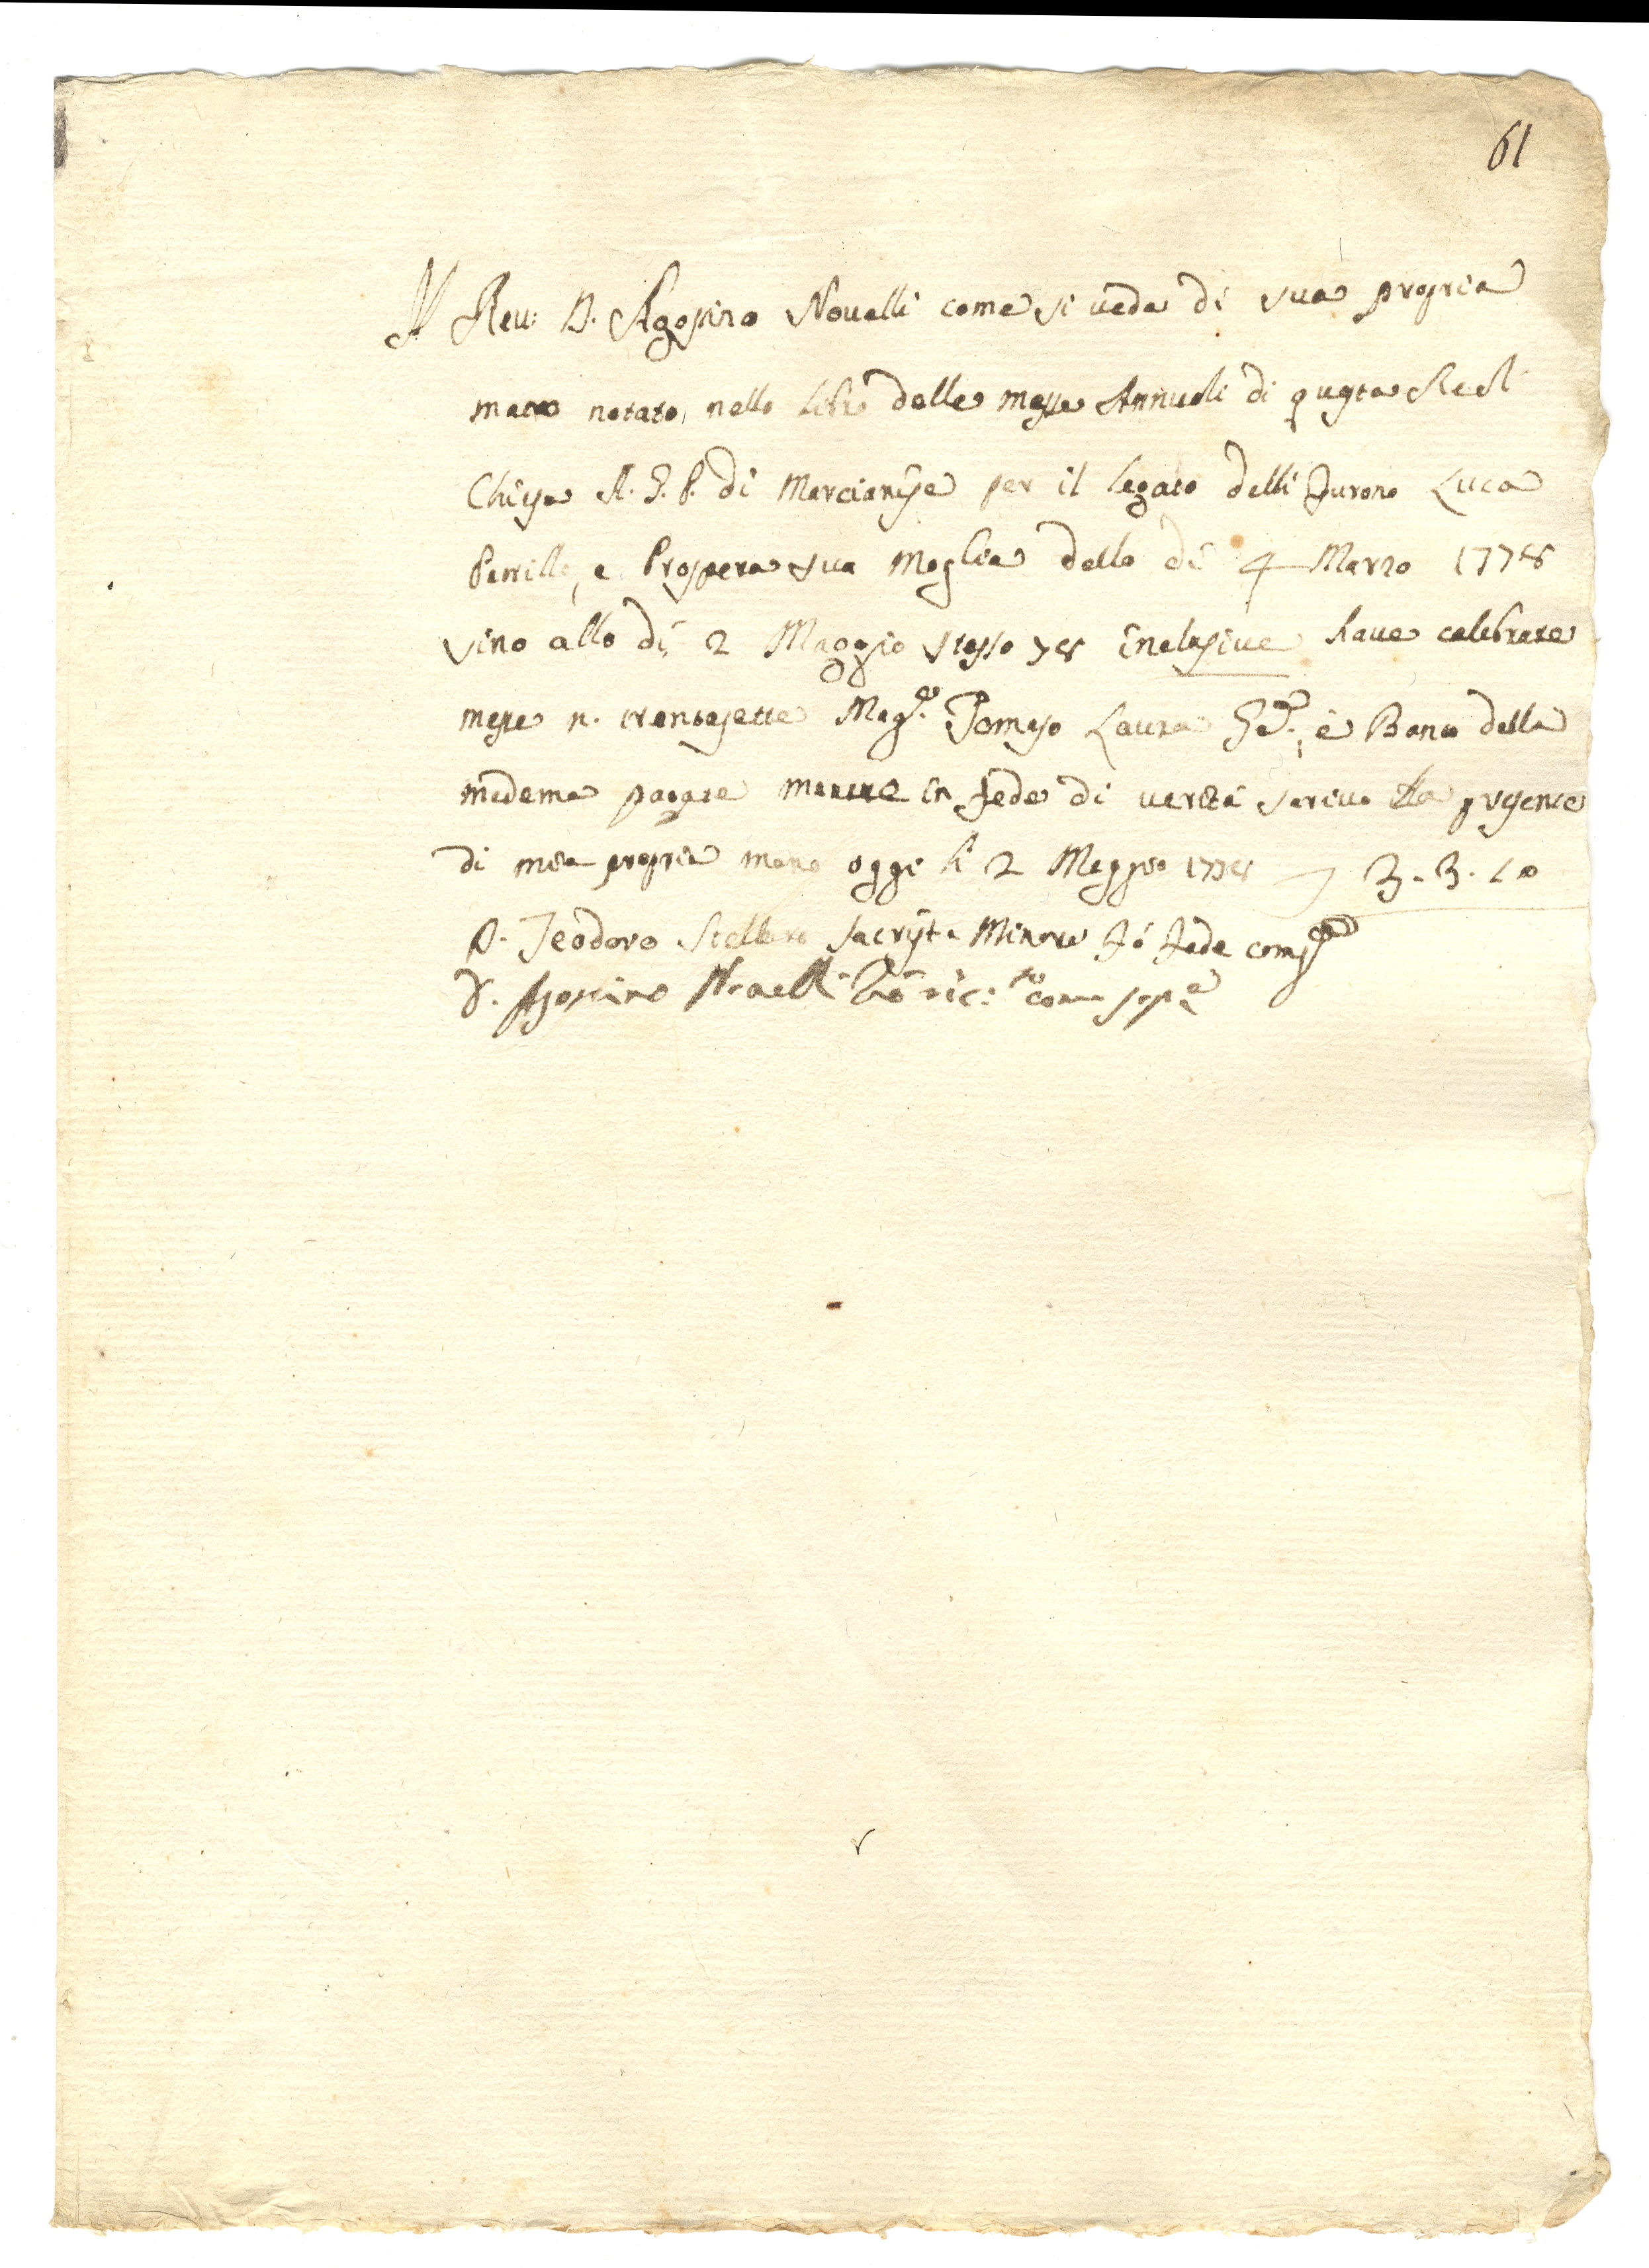 61
Il Rev: D. Agostino Novelli come si vede di sua propria
mano notato, nello libro delle messe Annuali di questa
Chiesa A. G. P. di Marcianise per il legato delli Luca
Perrillo, e Prospera sua Moglie dallo dì 4 Marzo 1778
sino allo dì 2 Maggio stesso 78 inclusive have celebrate
messe n. trentasette Mag.co Tomaso Laura è Banco della
medema pagate mentre in fede di verità scrivo la presente
di mia propria mano oggi li 2 Maggio 1778 3.3.10
D. Teodoro Sacrista Minore fò fede come sop.a
D. Agostino Novelli hò ric:to come sop.a